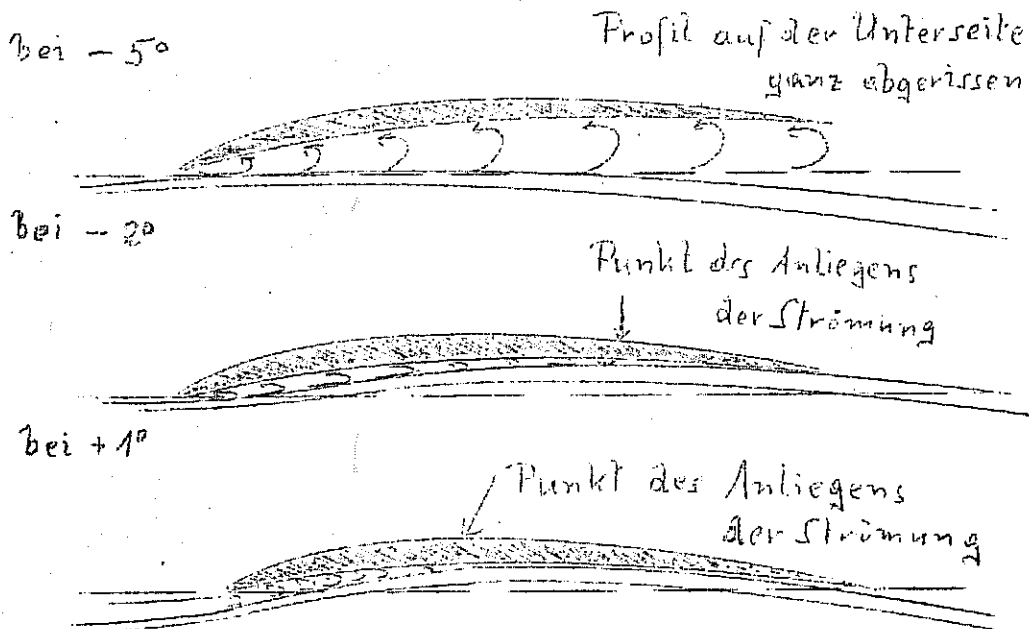 bei - 5°
Profil auf der Unterseite
ganz abgerissen
bei - 2°
Punkt des Anliegens
der Strömung
bei + 1°
Punkt des Anliegens
der Strömung